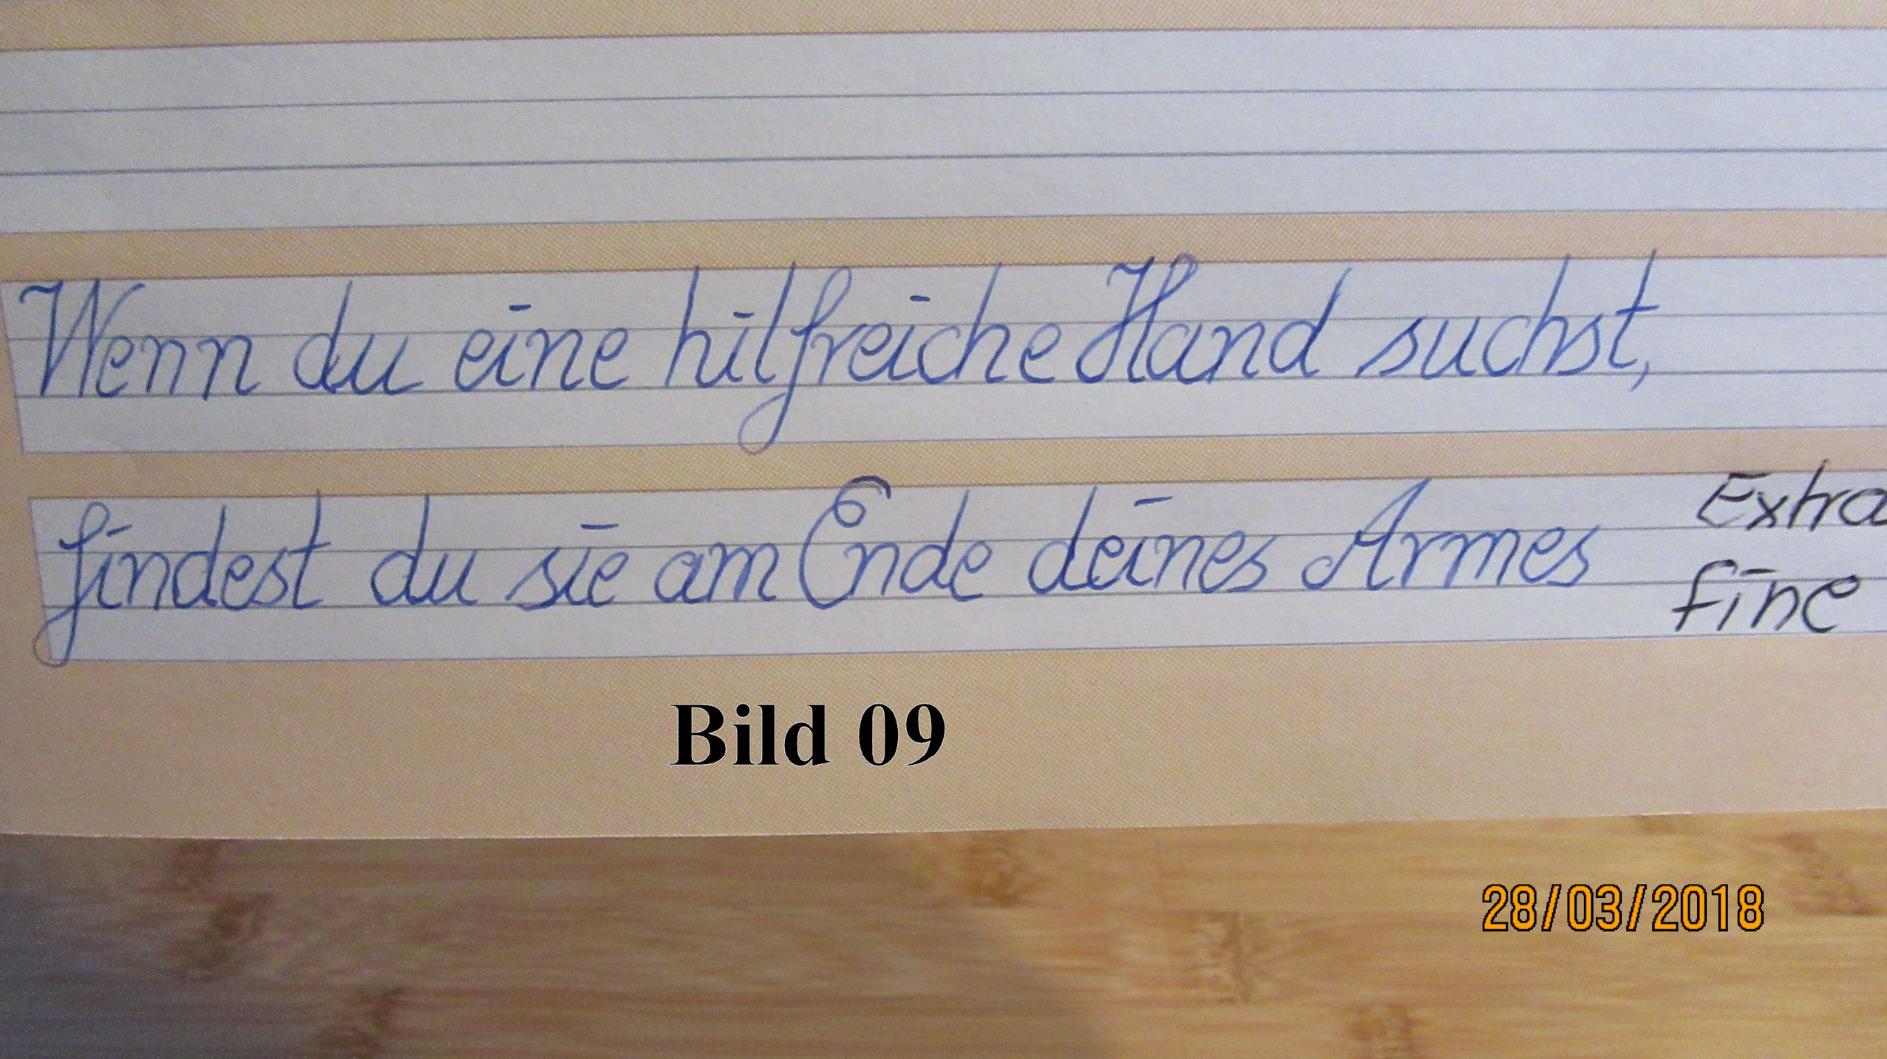 Wenn du eine hilfreiche Hand suchst,
findest du sie am Ende deines Armes
Extra
fine
Bild 09
28/03/2018